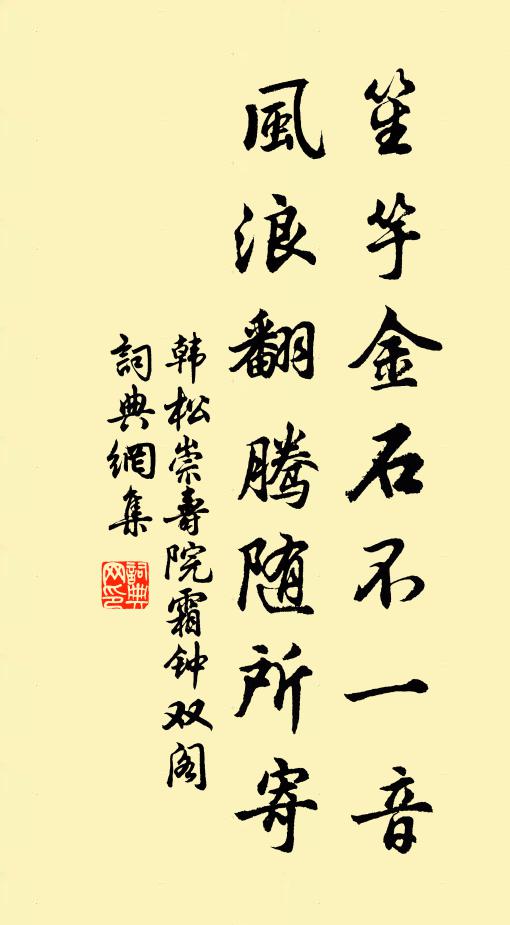 笙竽金石不一音
風浪翻騰随所寄
韩松崇壽院霜钟双阁
詞典網集
詞典
网印